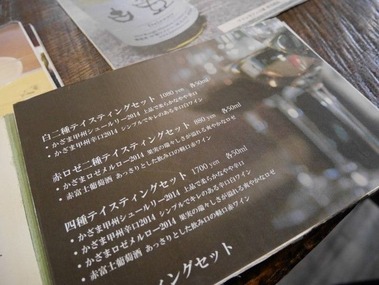 白二種テイスティングセット 1080 yen 各50ml
・かざま甲州シュールリー2014 上品で柔らかなやや辛口
・かざま甲州辛口2014 シンプルでキレのある辛口白ワイン
赤ロゼ二種テイスティングセット 880 yen 各50ml
・かざまロゼメルロー2014 果実の瑞々しさが溢れる爽やかなロゼ
・赤富士葡萄酒 あっさりとした飲み口の軽口赤ワイン
四種テイスティングセット 1700 yen 各50ml
・かざま甲州シュールリー2014 上品で柔らかなやや辛口
・かざま甲州辛口2014 シンプルでキレのある辛口白ワイン
・かざまロゼメルロー2014 果実の瑞々しさが溢れる爽やかなロゼ
・赤富士葡萄酒 あっさりとした飲み口の軽口赤ワイン
イスティングセット